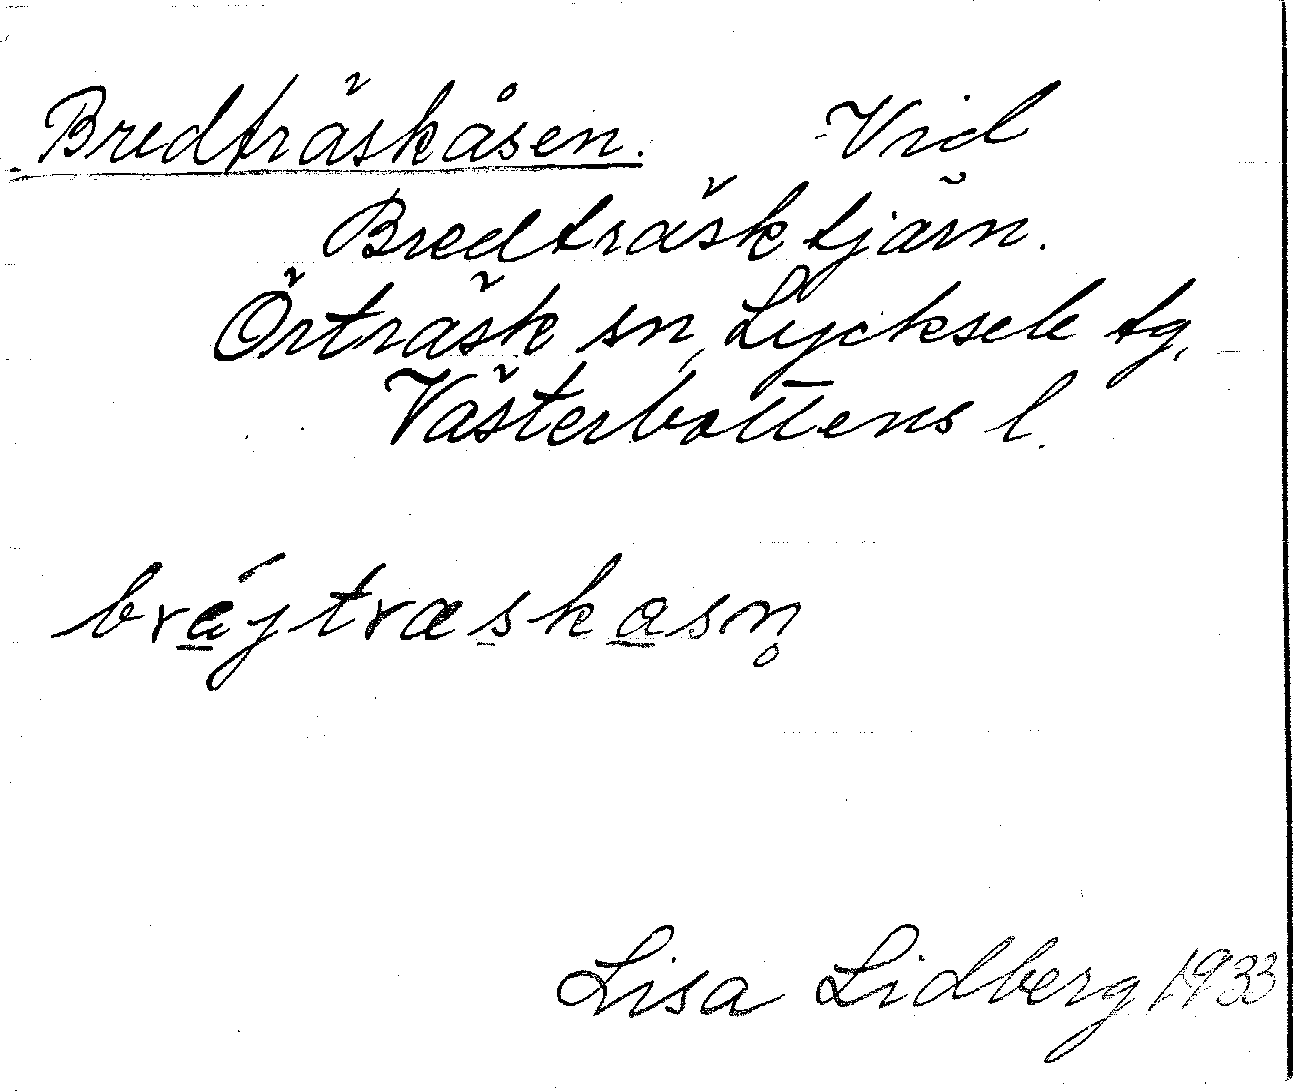 Bredträskåsen. Vid
Bredträsktjärn.
Örträsk sn, Lycksele tg,
Västerbottens l.
bräjtræskasn̥
Lisa Lidberg 1933